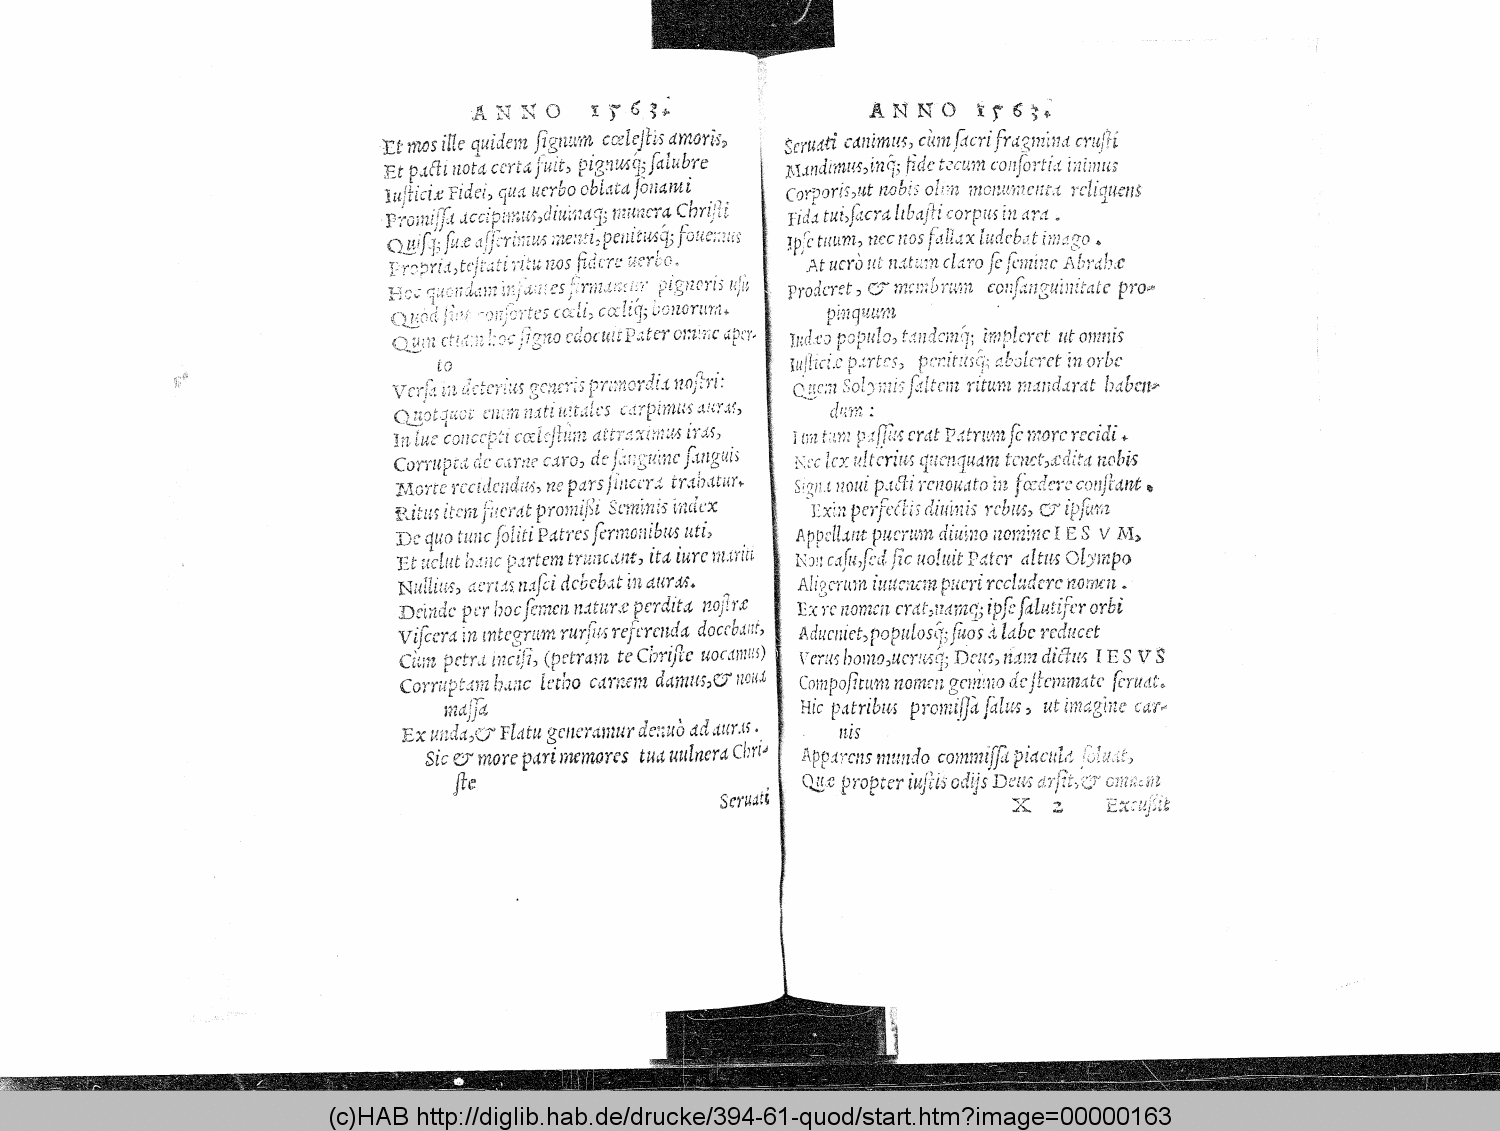 ANNO 1563.
Et mos ille quidem ſignum cœleſtis amoris,
Et pacti nota certa fuit, pignusq́; ſalubre
Iuſticiæ Fidei, qua uerbo oblata ſonanti
Promiſſa accipimus, diuinaq; munera Chriſti
Quiſq; ſuæ aſſerimus menti, penitusq́; fouemus
Propria, teſtati ritu nos fidere uerbo.
Hoc quondam infantes firmantur pigneris uſu
Quod ſint conſortes cœli, cœliq́; bonorum.
Quin etiam hoc ſigno edocuit Pater omine aper-
to
Verſa in deterius generis primordia noſtri:
Quotquot enim nati uitales carpimus auras,
In lue concepti cœleſtùm attraximus iras,
Corrupta de carne caro, de ſanguine ſanguis
Morte recidendus, ne pars ſincera trahatur.
Ritus item fuerat promiſſi Seminis index
De quo tunc ſoliti Patres ſermonibus uti,
Et uelut hanc partem truncant, ita iure mariti
Nullius, aerias naſci debebat in auras.
Deinde per hoc ſemen naturæ perdita noſtræ
Viſcera in integrum rurſus referenda docebant,
Cùm petra inciſi, (petram te Chriſte uocamus)
Corruptam hanc letho carnem damus, & noua
maſſa
Ex unda, & Flatu generamur denuò ad auras.
Sic & more pari memores tua uulnera Chri-
ſte
Seruati
ANNO 1563.
Seruati canimus, cùm ſacri fragmina cruſti
Mandimus, inq́; fide tecum conſortia inimus
Corporis, ut nobis olim monumenta reliquens
Fida tui, ſacra libaſti corpus in ara.
Ipſe tuum, nec nos fallax ludebat imago.
At uerò ut natum claro ſe ſemine Abrahæ
Proderet, & membrum conſanguinitate pro-
pinquum
Iudæo populo, tandemq́; impleret ut omnis
Iuſticiæ partes, penitusq́; aboleret in orbe
Quem Solymis ſaltem ritum mandarat haben-
dum:
Iam tum paſſus erat Patrum ſe more recidi.
Nec lex ulterius quenquam tenet, ædita nobis
Signa noui pacti renouato in fœdere conſtant.
Exin perfectis diuinis rebus, & ipſum
Appellant puerum diuino nomine IESVM,
Non caſu, ſed ſic uoluit Pater altus Olympo
Aligerum iuuenem pueri recludere nomen.
Ex re nomen erat, namq; ipſe ſalutifer orbi
Adueniet, populosq́; ſuos à labe reducet
Verus homo, uerusq́; Deus, nam dictus IESVS
Compoſitum nomen gemino de ſtemmate ſeruat.
Hic patribus promiſſa ſalus, ut imagine car-
nis
Apparens mundo commiſſa piacula ſoluat,
Quæ propter iuſtis odijs Deus arſit, & omnem
X 2 Excuſſit
(c)HAB http://diglib.hab.de/drucke/394-61-quod/start.htm?image=00000163